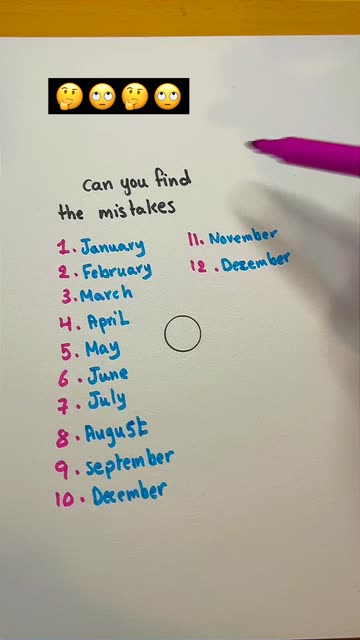 can you find
the mistakes
1. January
2. February
3. March
4. April
5. May
6. June
7. July
8. August
9. september
10. December
11. November
12. Dezember